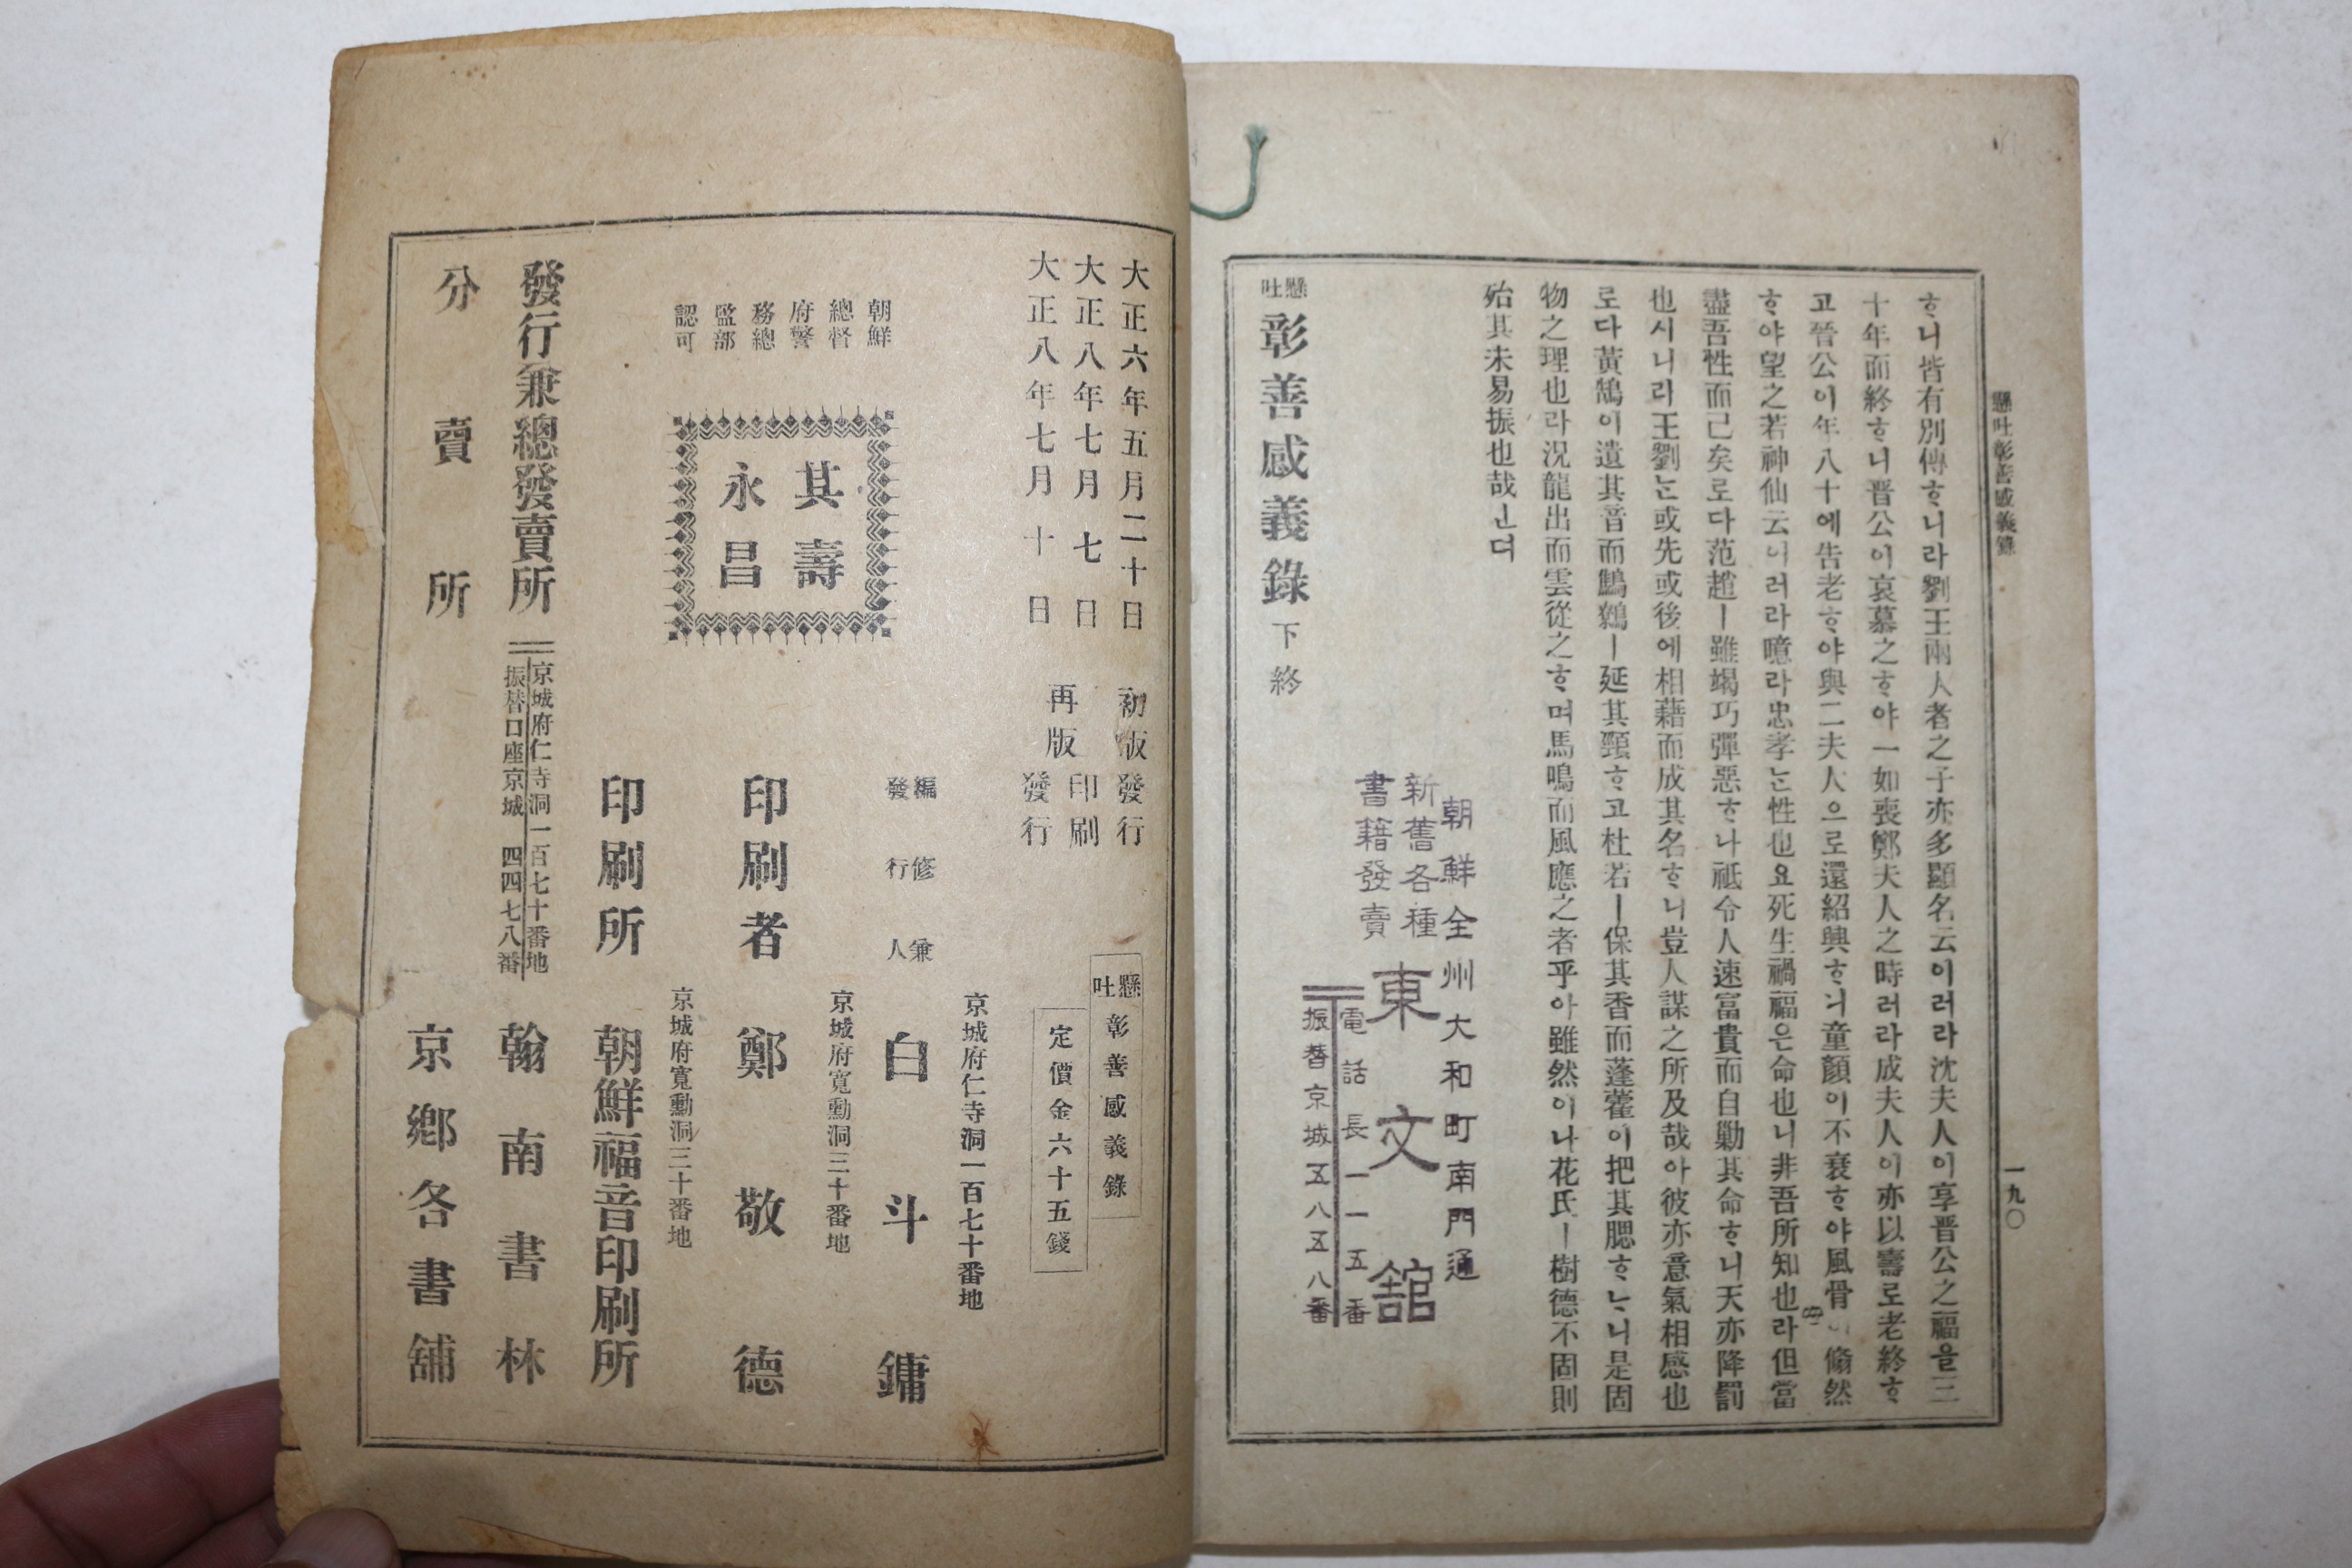 懸吐彰善感義錄
一九〇
ᄒᆞ니皆有別傳ᄒᆞ니라劉王兩人者之子亦多顯名云이러라沈夫人이享晋公之福을三
十年而終ᄒᆞ니晋公이哀慕之ᄒᆞ야一如喪鄭夫人之時러라成夫人이亦以壽로老終ᄒᆞ
고晉公이年八十에告老ᄒᆞ야與二夫人으로還紹興ᄒᆞ니童顏이不衰ᄒᆞ야風骨이翛然
ᄒᆞ야望之若神仙云이러라噫라忠孝ᄂᆞᆫ性也요死生禍福은命也니非吾所知也라但當
盡吾性而已矣로다范趙ㅣ雖竭巧彈惡ᄒᆞ나祗令人速富貴而自勦其命ᄒᆞ니天亦降罰
也시니라王劉ᄂᆞᆫ或先或後에相藉而成其名ᄒᆞ니豈人謀之所及哉아彼亦意氣相感也
로다黃鵠이遺其音而鷦鷯ㅣ延其頸ᄒᆞ고杜若ㅣ保其香而蓬藿이把其腮ᄒᆞᄂᆞ니是固
物之理也라况龍出而雲從之ᄒᆞ며馬鳴而風應之者乎아雖然이나花氏ㅣ樹德不固則
殆其未易振也哉ᆫ뎌
朝鮮全州大和町南門通
新舊各種
書籍發賣
東文舘
電話長一一五番
振替京城五八五八番
懸吐彰善感義錄下終
大正六年五月二十日 初版發行
大正八年七月七日 再版印刷
大正八年七月十日 發行
懸吐彰善感義錄
定價金六十五錢
朝鮮
總督
府警
務總
監部
認可
其壽
永昌
京城府仁寺洞一百七十番地
編修兼
發行人
白斗鏞
京城府寬勳洞三十番地
印刷者 鄭敬德
京城府寬勳洞三十番地
印刷所 朝鮮福音印刷所
發行兼總發賣所
京城府仁寺洞一百七十番地
振替口座京城四四七八番
翰南書林
分賣所 京鄉各書舖